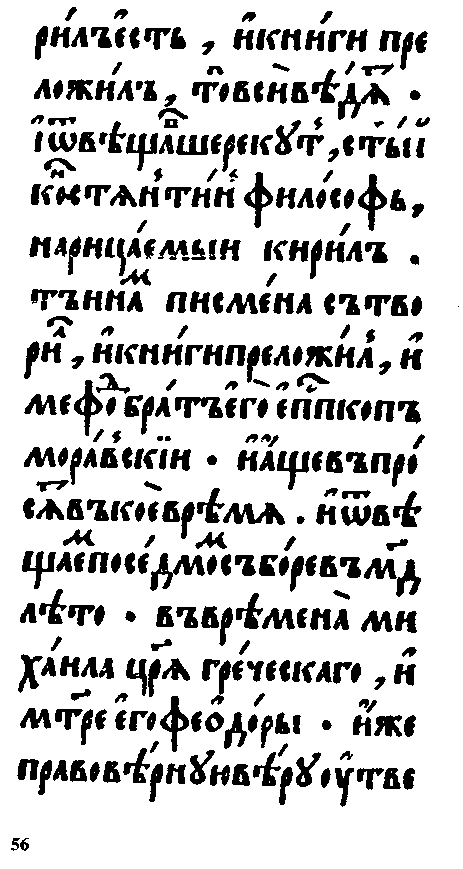 ри́лъе҆сть , и҆кни́ги пре
ложи́лъ, то̑всѝвѣ́дѧ҃ ·
і҆ѿвѣща́вшерекꙋт̾, ст҃ы́й
ко́стѧнтїи̑н̾ ѳило́соѳь,
нарица́емыи кири́лъ .
тъннам писме́на сътво
ри̑л , и҆кни́гипреложи́л , и҆
меѳо́д бра́тъе҆го̀ е҆пⷭ҇пкопъ
мора́вскїи · и҆а҆́щевъпро́
сѧ҃въкоѐврѣмѧ . и҆ѿвѣ
ща́ем посе́дмомсъбо́ревъмд҃
лѣто · въврѣмена̀ ми
ха́ила цр҃ѧ гре́ческаго , и҆
мт҃ре е҆го̀ ѳео҆до́ры · и҆́же
правовѣ́рнꙋювѣ́рꙋ оу҆тве
56